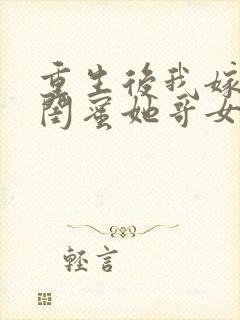 重生後我嫁
閨蜜她哥女
輕言